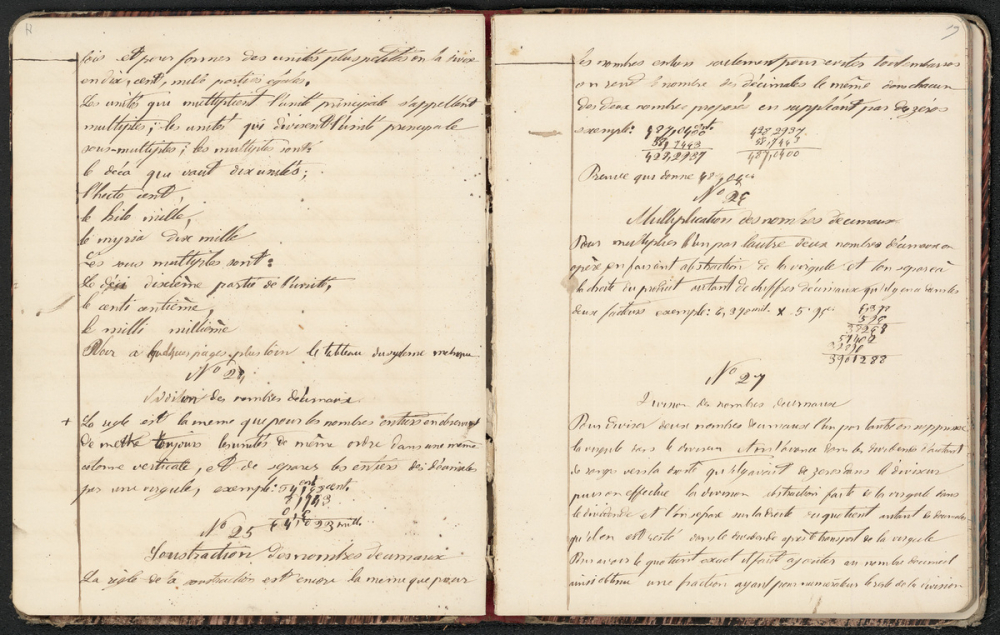 fois et pour former des unités plus petites on la divise
en dix, cent, mille parties égales.
Les unités qui multiplient l'unité principale s'appellent
multiples; les unités qui divisent l'unité principale
sous-multiples; les multiples sont:
le déca qui vaut dix unités;
l'hecto cent,
le kilo mille,
le myria dix mille
Les sous multiples sont:
Le déci dixième partie de l'unité,
le centi centième,
le milli millième
Voir a quelques pages plus loin le tableau du système métrique
Nº 24
Addition des nombres décimaux
+ La règle est la meme que pour les nombres entiers en observant
de mettre toujours les unités de même ordre dans une même
colonne verticale, et de séparer les entiers des décimales
par une virgule, exemple:
Nº 25
Soustraction des nombres decimaux
La règle de la soustraction est encore la meme que pour
les nombres entiers seulement pour éviter tout embarras
on rend le nombre des décimales le même dans chacun
des deux nombres proposés en suppléant par des zéros
exemple: 487,0400 428 2937
58,7463 58,7463
428,2937 487,0400
Preuve qui donne
Nº 26
Multiplication des nombres décimaux
Pour multiplier l'un par l'autre deux nombres décimaux on
opère en faisant abstraction de la virgule et l'on sépare à
la droite du produit autant de chiffres décimaux qu'il y en a dans les
deux facteurs exemple:
3901288
Nº 27
Division des nombres decimaux
Pour diviser deux nombres decimaux l'un par l'autre on supprime
la virgule dans le diviseur et on l'avance dans le dividende d'autant
de rangs vers la droite qu'il y avait de dans le diviseur
puis on effectue la division abstraction faite de la virgule dans
le dividende et l'on sépare sur la droite du quotient autant de décimales
qu'il en est resté dans le dividende après le transport de la virgule
Pour avoir le quotient exact il faut ajouter au nombre decimal
ainsi obtenu une fraction ayant pour numérateur le reste de la division